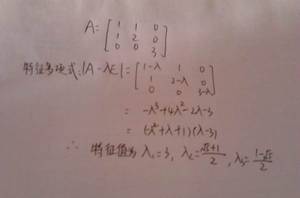 A = [ 1 1 0
1 2 0
0 0 3 ]
特征多项式: |A - λE| = | 1-λ 1 0
1 2-λ 0
0 0 3-λ |
= -λ³+4λ²-2λ-3
= (-λ²+λ+1)(λ-3)
∴ 特征值为 λ₁=3, λ₂=(√5+1)/2, λ₃=(1-√5)/2